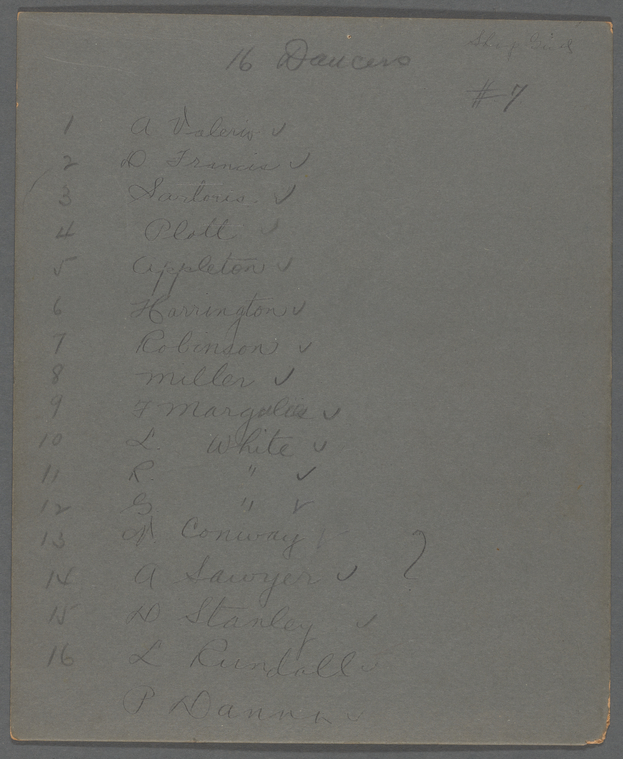 16 Dancers
#7
1 A Valerio ✓
2 D. Francis ✓
3 Sartoris ✓
4 Plott ✓
5 Appleton ✓
6 Harrington ✓
7 Robinson ✓
8 Miller ✓
9 F Margulies ✓
10 L. White ✓
11 R. " ✓
12 G " ✓
13 Conway
14 A Sawyer ✓
15 D Stanley ✓
16 L Rundall ✓
P Dunn ✓